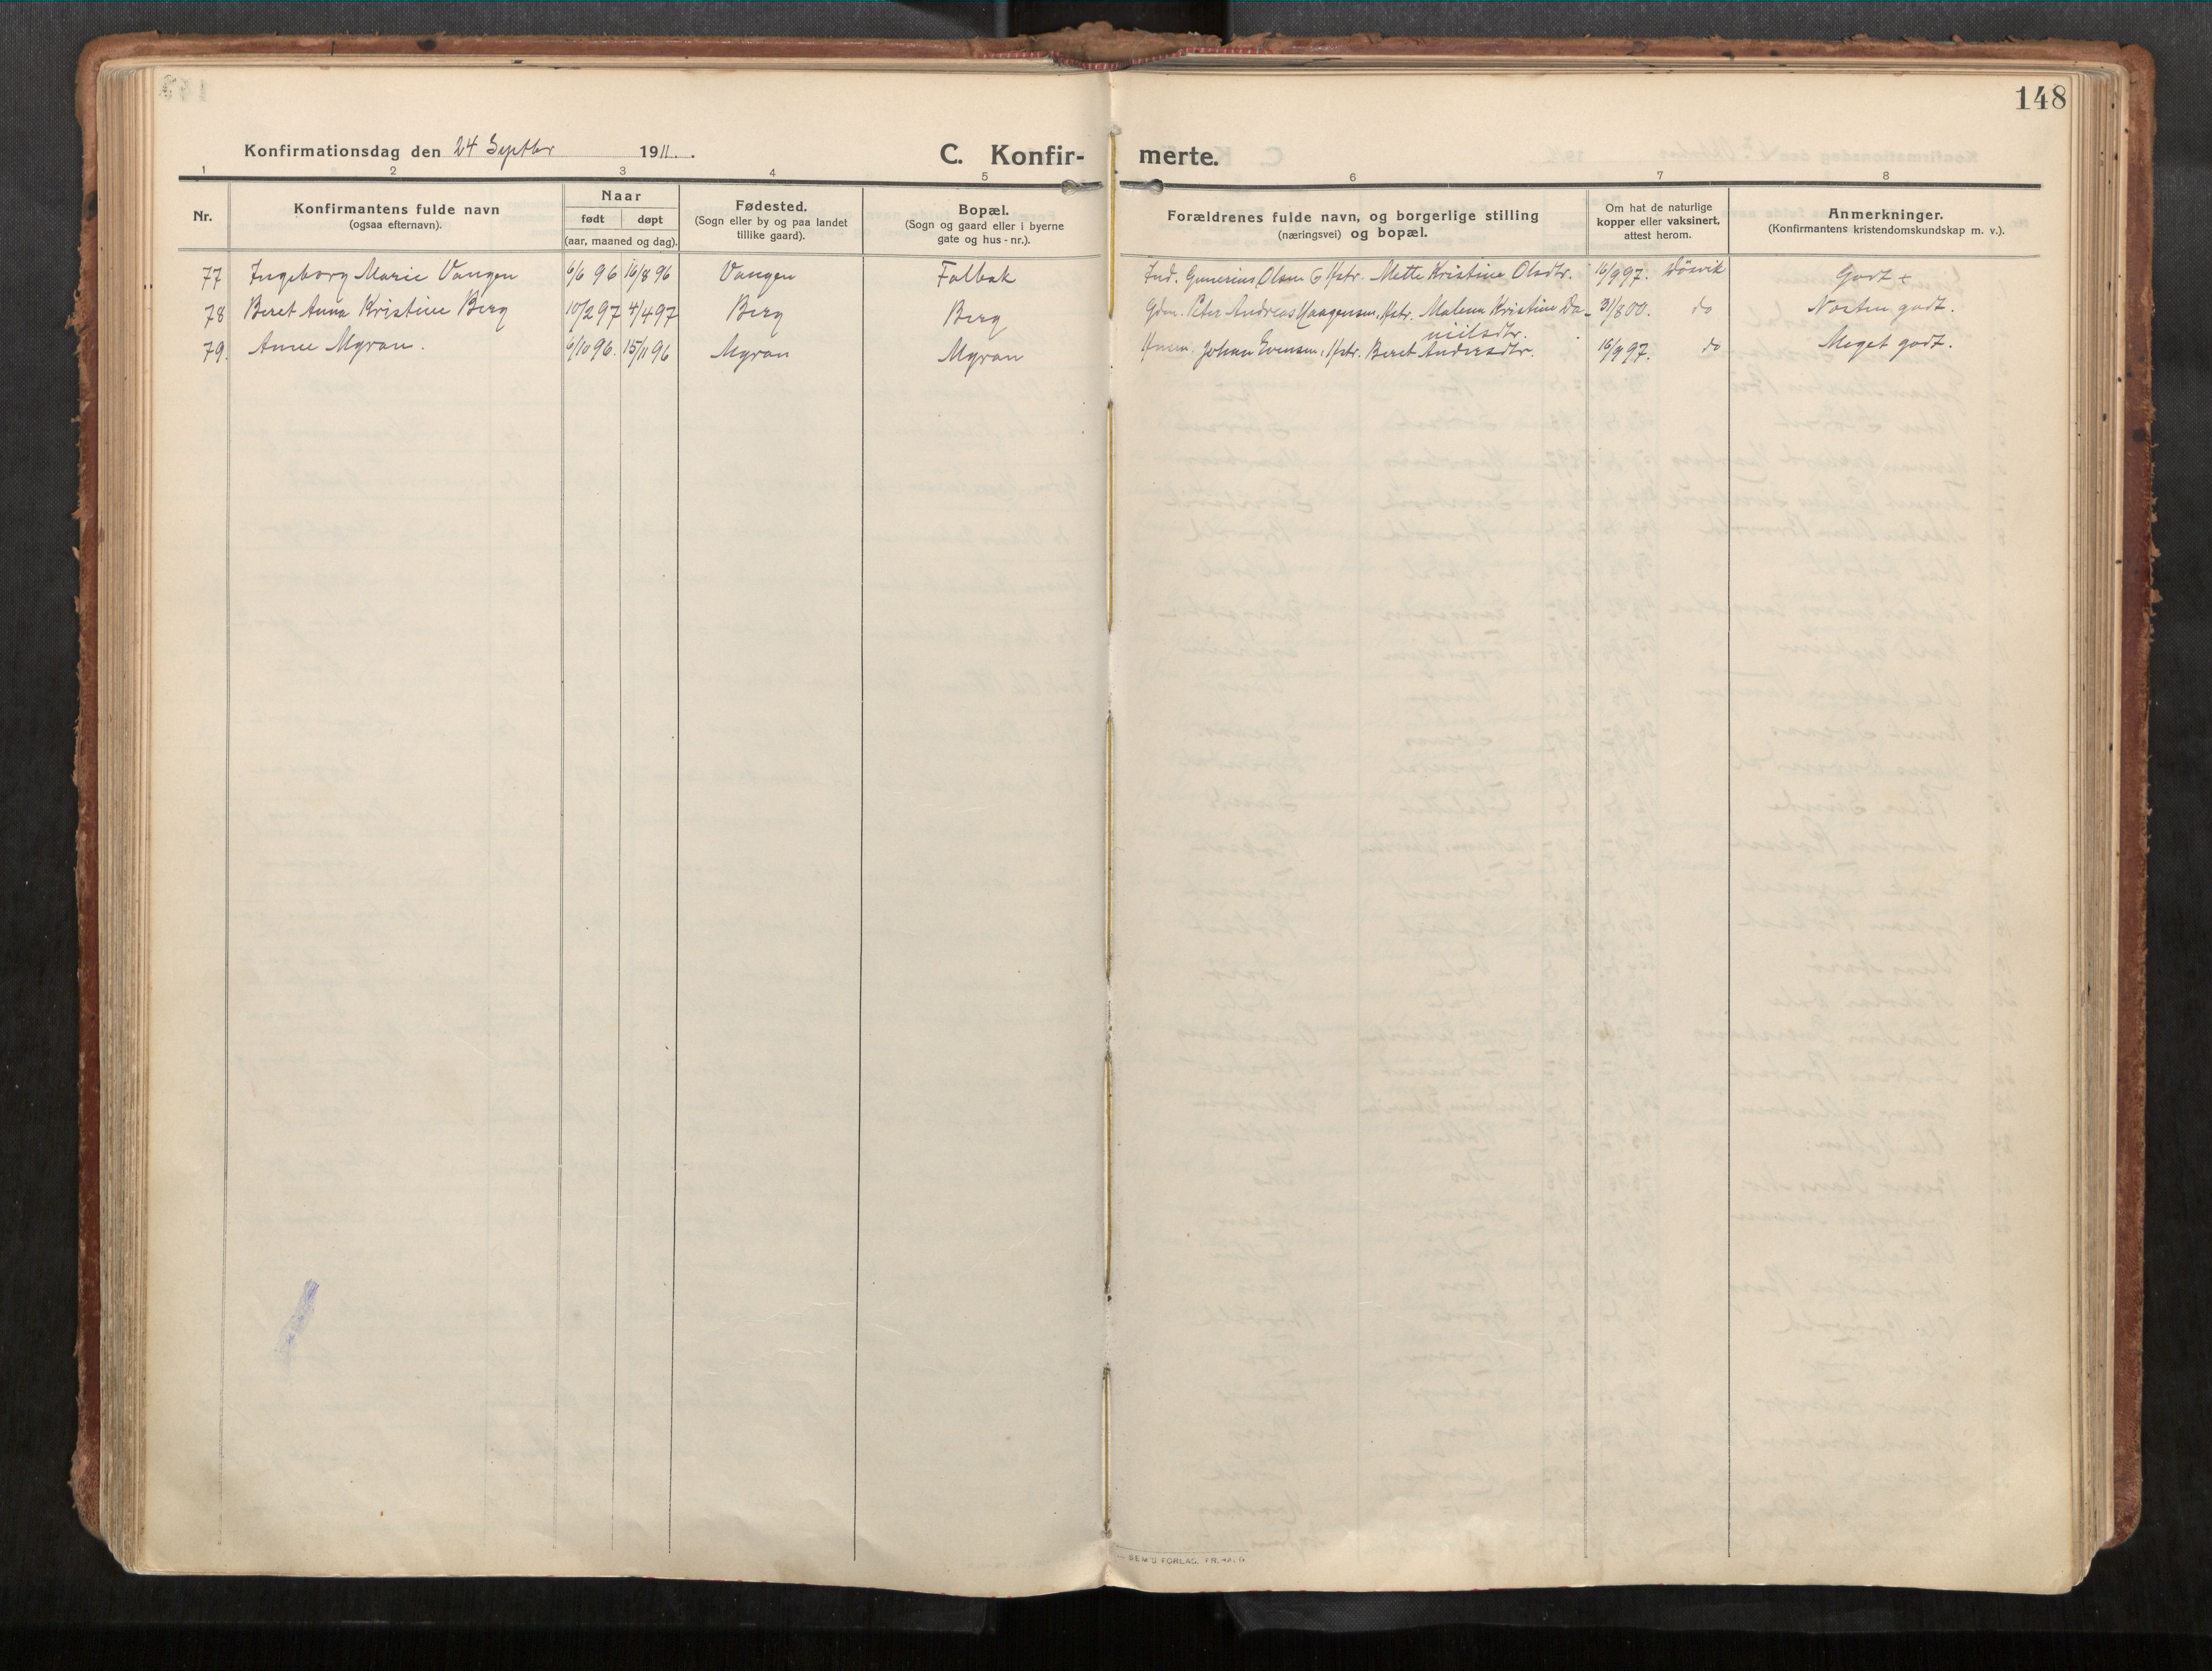 148
Konfirmationsdag den 24 Septbr 1911.
C. Konfir- merte.
1 2 3 4 5 6 7 8
Nr.
Konfirmantens fulde navn
(ogsaa efternavn).
Naar
født døpt
(aar, maaned og dag).
Fødested.
(Sogn eller by og paa landet
tillike gaard).
Bopæl.
(Sogn og gaard eller i byerne
gate og hus - nr.).
Forældrenes fulde navn, og borgerlige stilling
(næringsvei) og bopæl.
Om hat de naturlige
kopper eller vaksinert,
attest herom.
Anmerkninger.
(Konfirmantens kristendomskundskap m. v.).
77 Ingeborg Marie Vangen 6/6 96 16/8 96 Vangen Falbak Ind. Gunerius Olsen og Hstr. Mette Kristine Olsdtr. 16/9 97. Døsvik Godt +
78 Beret Anna Kristine Berg 10/2 97 4/4 97 Berg Berg Gdm. Peter Andreas Haagensen, Hstr. Malena Kristine Da- 31/8 00. do Næsten godt.
niilsdtr.
79. Anne Myran. 6/10 96. 15/11 96 Myran Myran Husm. Johan Evensen, Hstr. Beret Andersdtr. 16/9 97. do Meget godt.
SEM'S FORLAG, FR.HALD